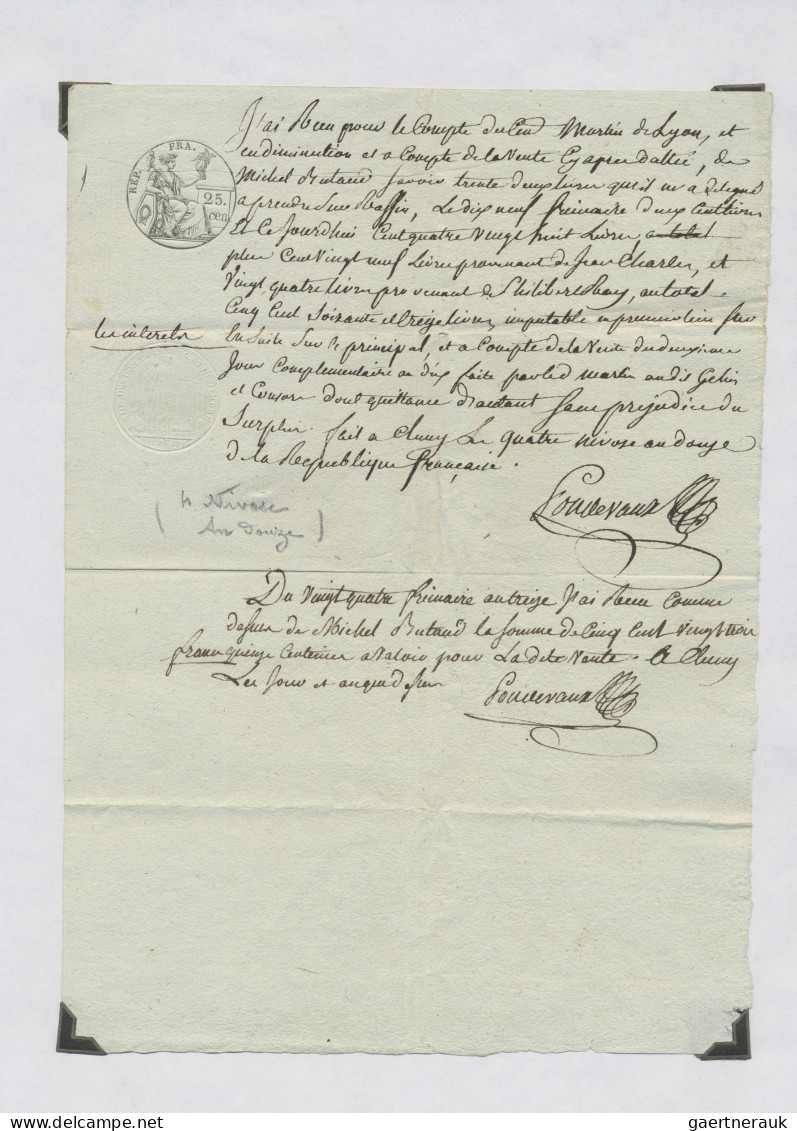 REP. FRA.
25.
cen
J'ai Recu pour le Compte du Cen Martin de Lyon, et
en diminution et a Compte de la Vente Cy apres dattée, de
Michel Butaud Savoir trente deux livres qu'il m'a delegué
a prendre Sur Raffin, Le dix neuf frimaire deux Cent livres
Et Ce Jourdhui Cent quatre Vingt huit Livres, a total
plus Cent Vingt neuf Livres provenant de Jean Charles, et
Vingt quatre livres provenant de Philibert, au total
Cinq Cent Soixante et treize livres, imputable en premier lieu Sur
les interets
En Suite Sur le principal, et a Compte de la Vente du deuxieme
Jour Complementaire an dix faite par led Martin audit Gelin
et Consors dont quittance d'autant Sans prejudice du
Surplus. fait a Cluny Le quatre nivose an douze
de la Republique française.
(4 Nivose
An Douze)
Poudevaux
Du Vingt quatre frimaire an treize J'ai Recu Comme
dessus de Michel Butaud la Somme de Cinq Cent Vingt trois
francs quinze Centimes a Valoir pour La dite Vente. a Cluny
Les Jour et an que dessus
Poudevaux
gaertnerauk @ delcampe.net